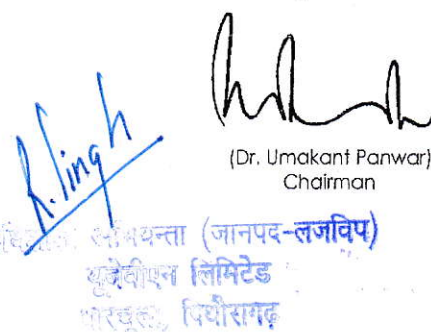 R. Singh
(Dr. Umakant Panwar)
Chairman
अभियन्ता (जानपद-लजविप)
यूजेवीएन लिमिटेड
धारचूला, पिथौरागढ़